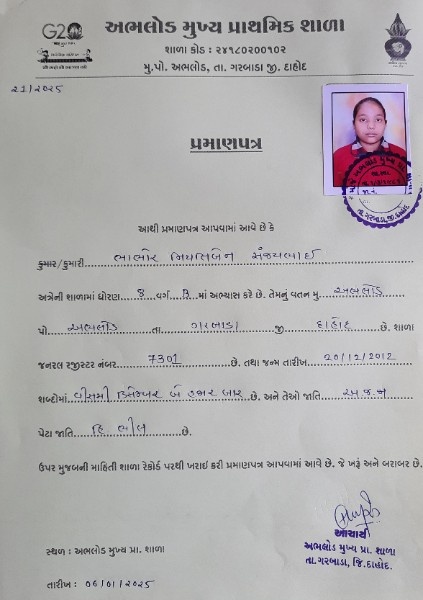 G20
અભલોડ મુખ્ય પ્રાથમિક શાળા
શાળા કોડ : ૨૪૧૮૦૨૦૦૧૦૨
મુ.પો. અભલોડ, તા. ગરબાડા જી. દાહોદ
21/2025
પ્રમાણપત્ર
તા.ગરબાડા, જી.દાહોદ
આથી પ્રમાણપત્ર આપવામાં આવે છે કે
કુમાર/કુમારી ભાભોર સંજયભાઈ
અત્રેની શાળામાં ધોરણ 8 વર્ગ માં અભ્યાસ કરે છે. તેમનું વતન મુ. અભલોડ
પો અભલોડ તા ગરબાડા જી દાહોદ છે. શાળા
જનરલ રજીસ્ટર નંબર 7301 છે. તથા જન્મ તારીખ 20/12/2012
શબ્દોમાં વીસમી ડિસેમ્બર બે હજાર બાર છે. અને તેઓ જાતિ અ.જ.જા
પેટા જાતિ હિ ભીલ છે.
ઉપર મુજબની માહિતી શાળા રેકોર્ડ પરથી ખરાઈ કરી પ્રમાણપત્ર આપવામાં આવે છે. જે ખરૂં અને બરાબર છે.
આચાર્ય
સ્થળ : અભલોડ મુખ્ય પ્રા. શાળા
અભલોડ મુખ્ય પ્રા. શાળા
તા.ગરબાડા, જિ.દાહોદ.
તારીખ : 06/01/2025